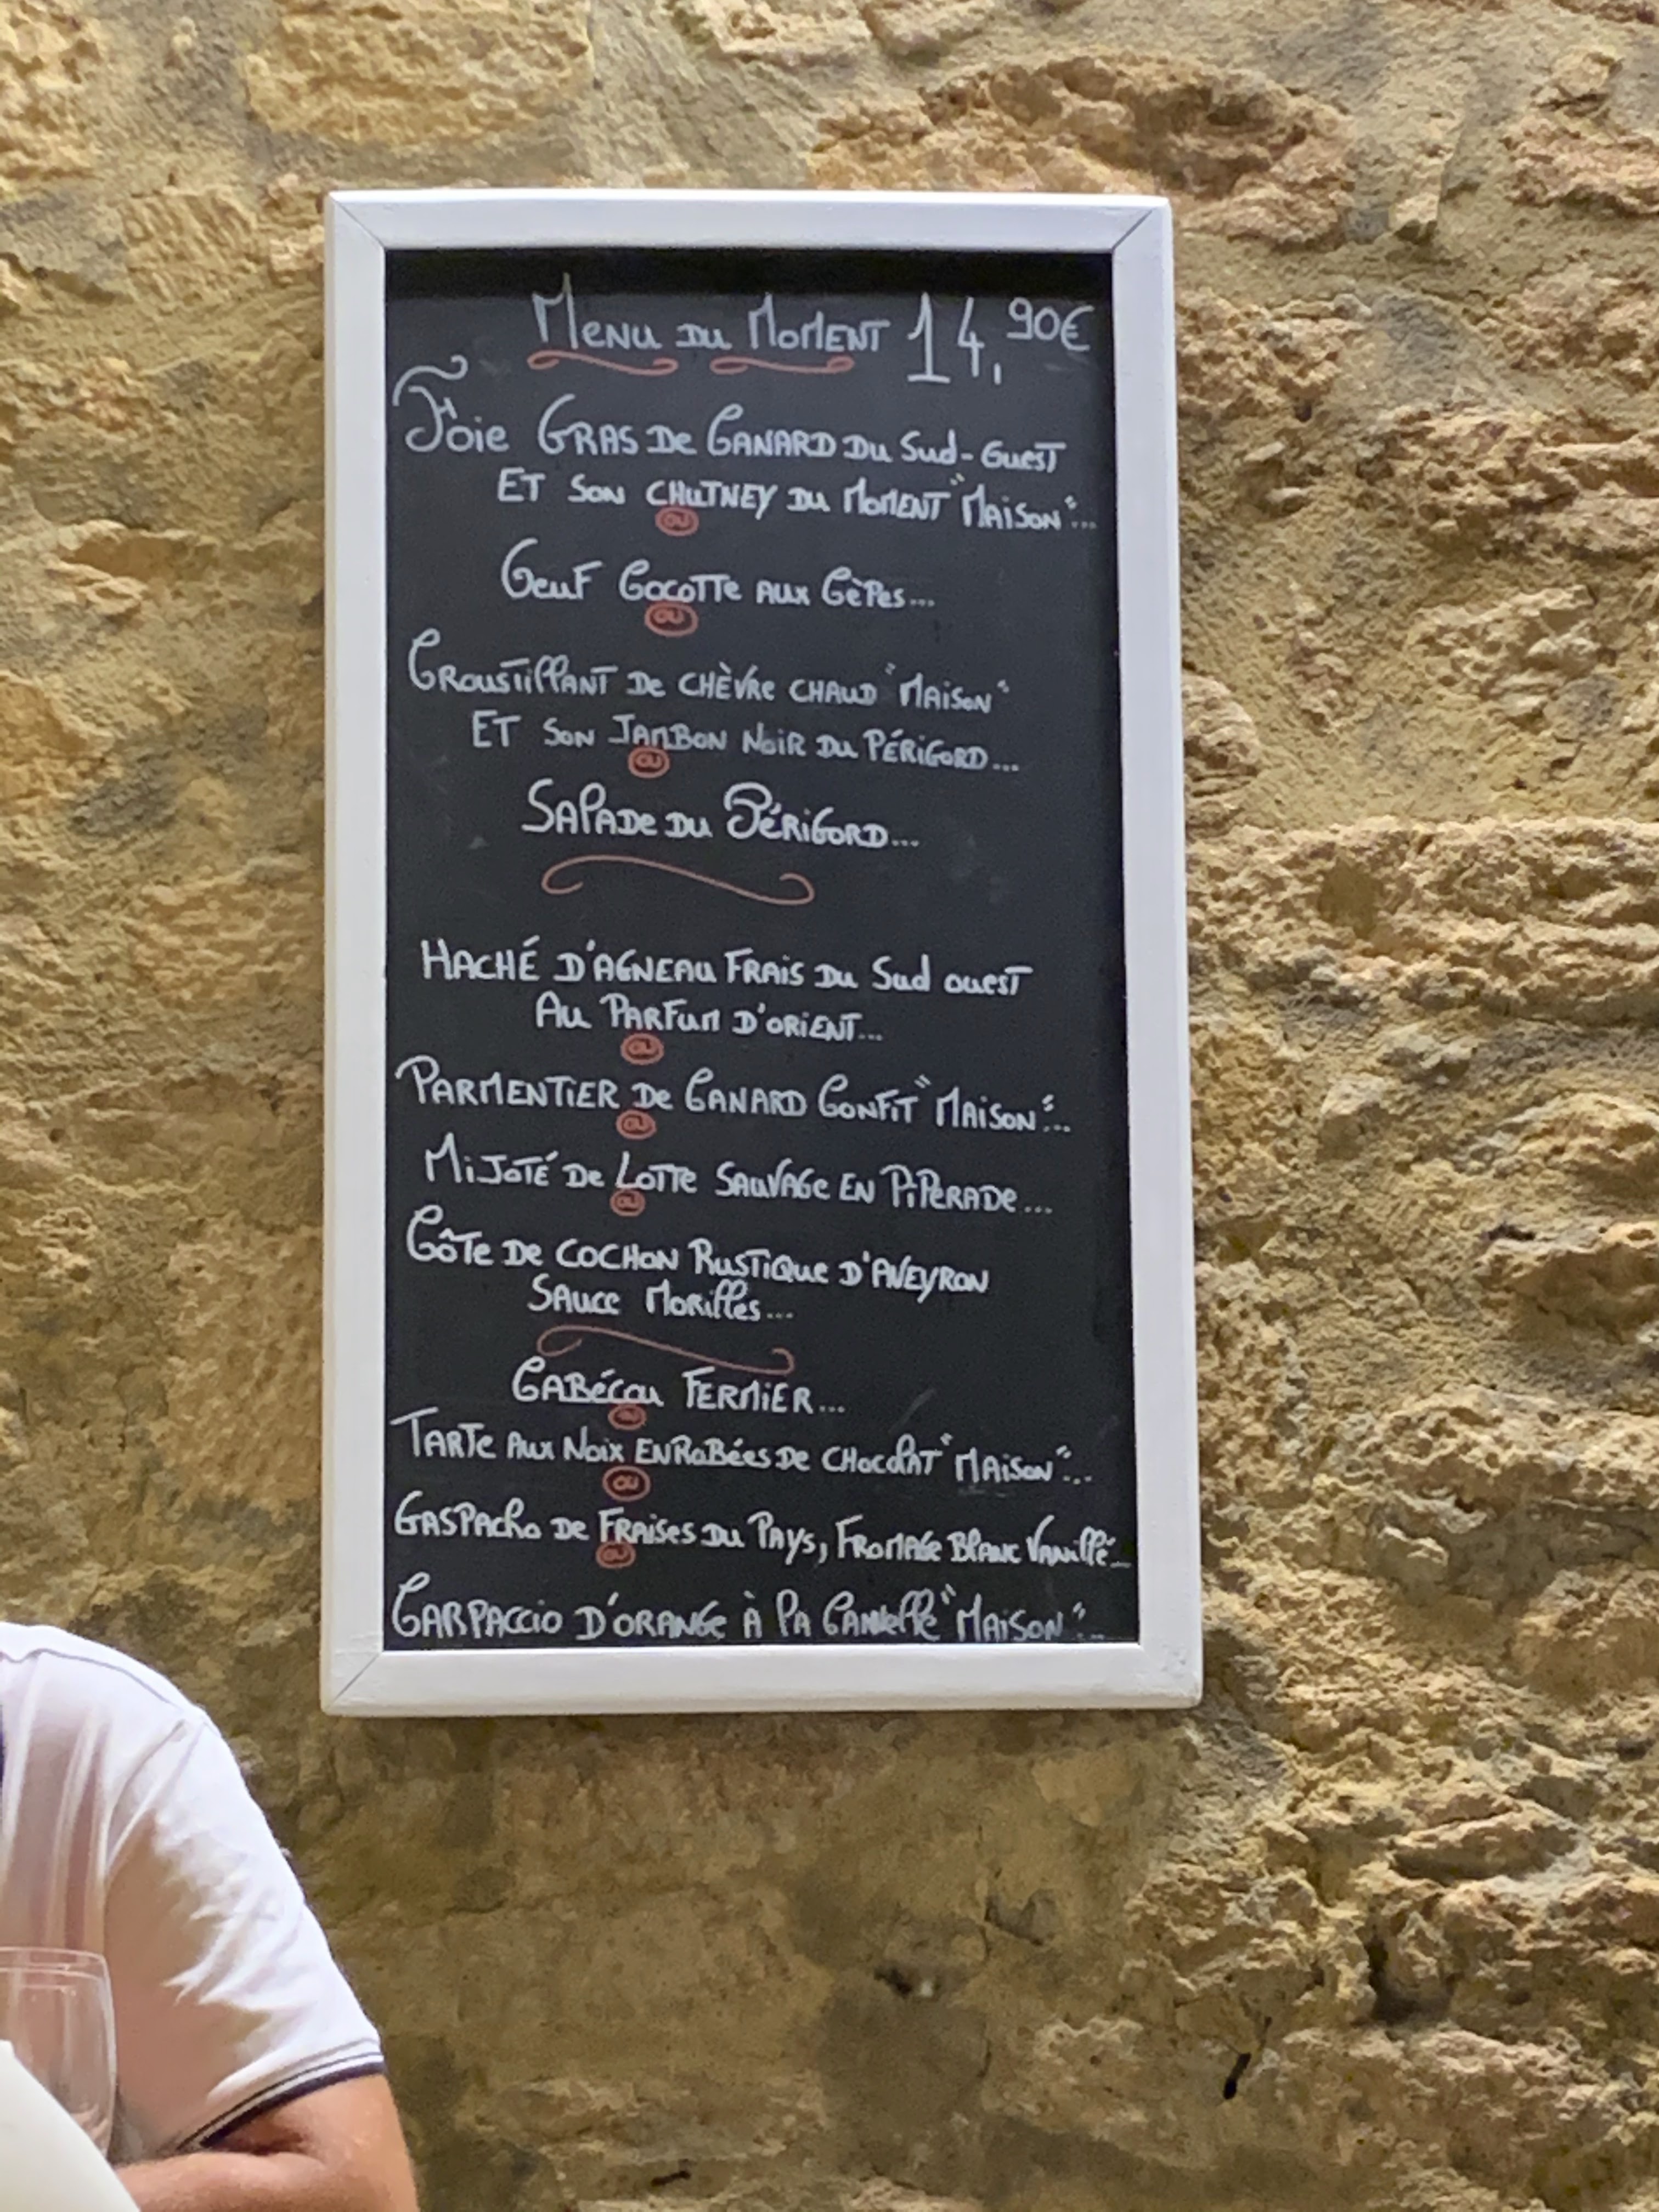 Menu du Moment 14,90€
Foie Gras de Canard du Sud-Ouest
et son chutney du moment "Maison"...
ou
Oeuf Cocotte aux Cèpes...
ou
Croustillant de chèvre chaud "Maison"
et son Jambon Noir du Périgord...
ou
Salade du Périgord...
Haché d'agneau frais du Sud ouest
au parfum d'orient...
ou
Parmentier de Canard Confit "Maison"...
ou
Mijoté de Lotte sauvage en Piperade...
ou
Côte de cochon Rustique d'Aveyron
sauce Morilles...
Cabécou fermier...
ou
Tarte aux Noix enrobées de chocolat "Maison"...
ou
Gaspacho de Fraises du Pays, Fromage Blanc Vanillé...
ou
Carpaccio d'orange à la Canelle "Maison"...